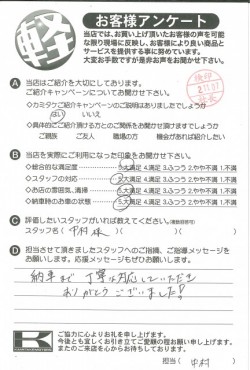 軽
お客様アンケート
当店では、お買い上げ頂いたお客様の声を可能な
限り現場に反映し、お客様により良い商品と
サービスを提供する事に努めております。
大変お手数ですが是非お声をお聞かせ下さい。
A 当店はご紹介を大切にしております。
ご紹介キャンペーンについてお聞かせ下さい。
◇カミタケご紹介キャンペーンのご説明はありましたでしょうか
はい いいえ
◇具体的にご紹介頂ける方とのご関係をお聞かせ頂けますでしょうか
ご親族 ご友人 職場の方 機会があれば紹介したい
B 当店を実際にご利用になった印象をお聞かせ下さい。
◇総合的な満足度 5.大満足 4.満足 3.ふつう 2.やや不満 1.不満
◇スタッフの対応 5.大満足 4.満足 3.ふつう 2.やや不満 1.不満
◇お店の雰囲気、清掃 5.大満足 4.満足 3.ふつう 2.やや不満 1.不満
◇納車時のお車の状態 5.大満足 4.満足 3.ふつう 2.やや不満 1.不満
C 評価したいスタッフがいれば教えてください。(複数回答可)
スタッフ名( 中村
D 担当させて頂きましたスタッフへのご指摘、ご指導メッセージを
お願いします。応援メッセージもぜひお願いします。
納車まで 丁寧な対応していただき
ありがとうございました!
K
ご協力に心よりお礼を申し上げます。
今後とも宜しくお引き立てご愛顧の程お願い申し上げます。
またのご来店を心からお待ちしております。
担当( 中村 )